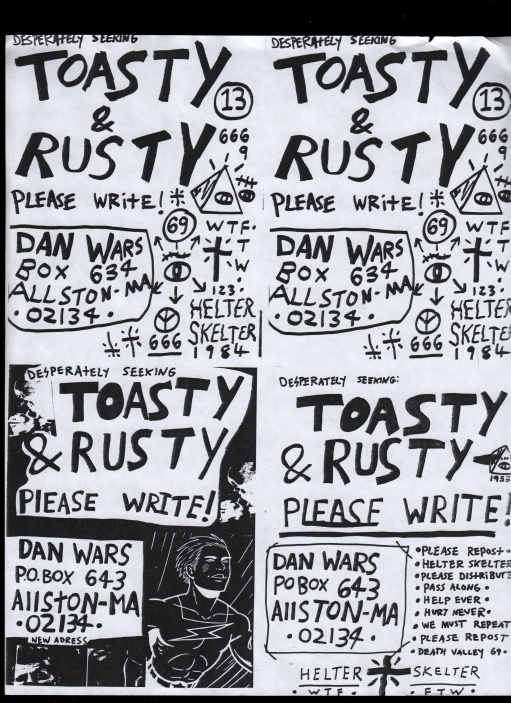 DESPERATELY SEEKING
TOASTY
13
&
RUSTY
666
9
PLEASE WRITE!
69
WTF.
T
W
DAN WARS
BOX 634
ALLSTON-MA
• 02134 •
123.
HELTER
SKELTER
666
1984
DESPERATELY SEEKING
TOASTY
13
&
RUSTY
666
9
PLEASE WRITE!
69
WTF
T
W
DAN WARS
BOX 634
ALLSTON-MA
• 02134 •
123.
HELTER
SKELTE
666
1984
DESPERATELY SEEKING
TOASTY
& RUSTY
PlEASE WRITE!
DAN WARS
P.O. BOX 643
AllSTON-MA
• 02134 •
NEW ADRESS
DESPERATELY SEEKING:
TOASTY
& RUSTY
1953
PLEASE WRITE!
DAN WARS
PO BOX 643
AllSTON-MA
• 02134 •
• PLEASE REPOST •
• HELTER SKELTER
• PLEASE DISTRIBUTE
• PASS ALONG •
• HELP EVER •
• HURT NEVER •
• WE MUST REPEAT
• PLEASE REPOST
• DEATH VALLEY 69 •
HELTER SKELTER
• WTF • • FTW •